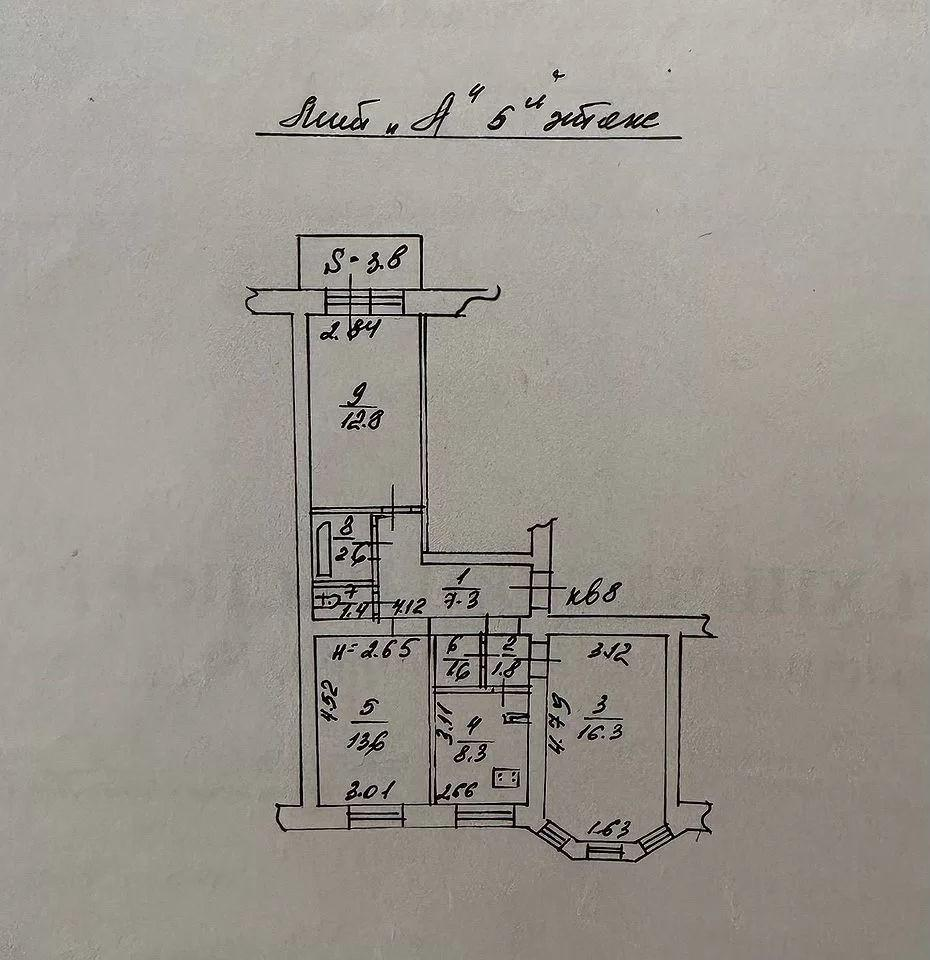 Лит „А" 5й этаж
S-3.8
2.84
9
12.8
8
2.6
7
1.4
4.12
1
7.3
кв 8
н=2.65
6
1.6
2
1.8
3.12
4.52
5
13.6
3.11
4
8.3
4.79
3
16.3
3.01
2.66
1.63